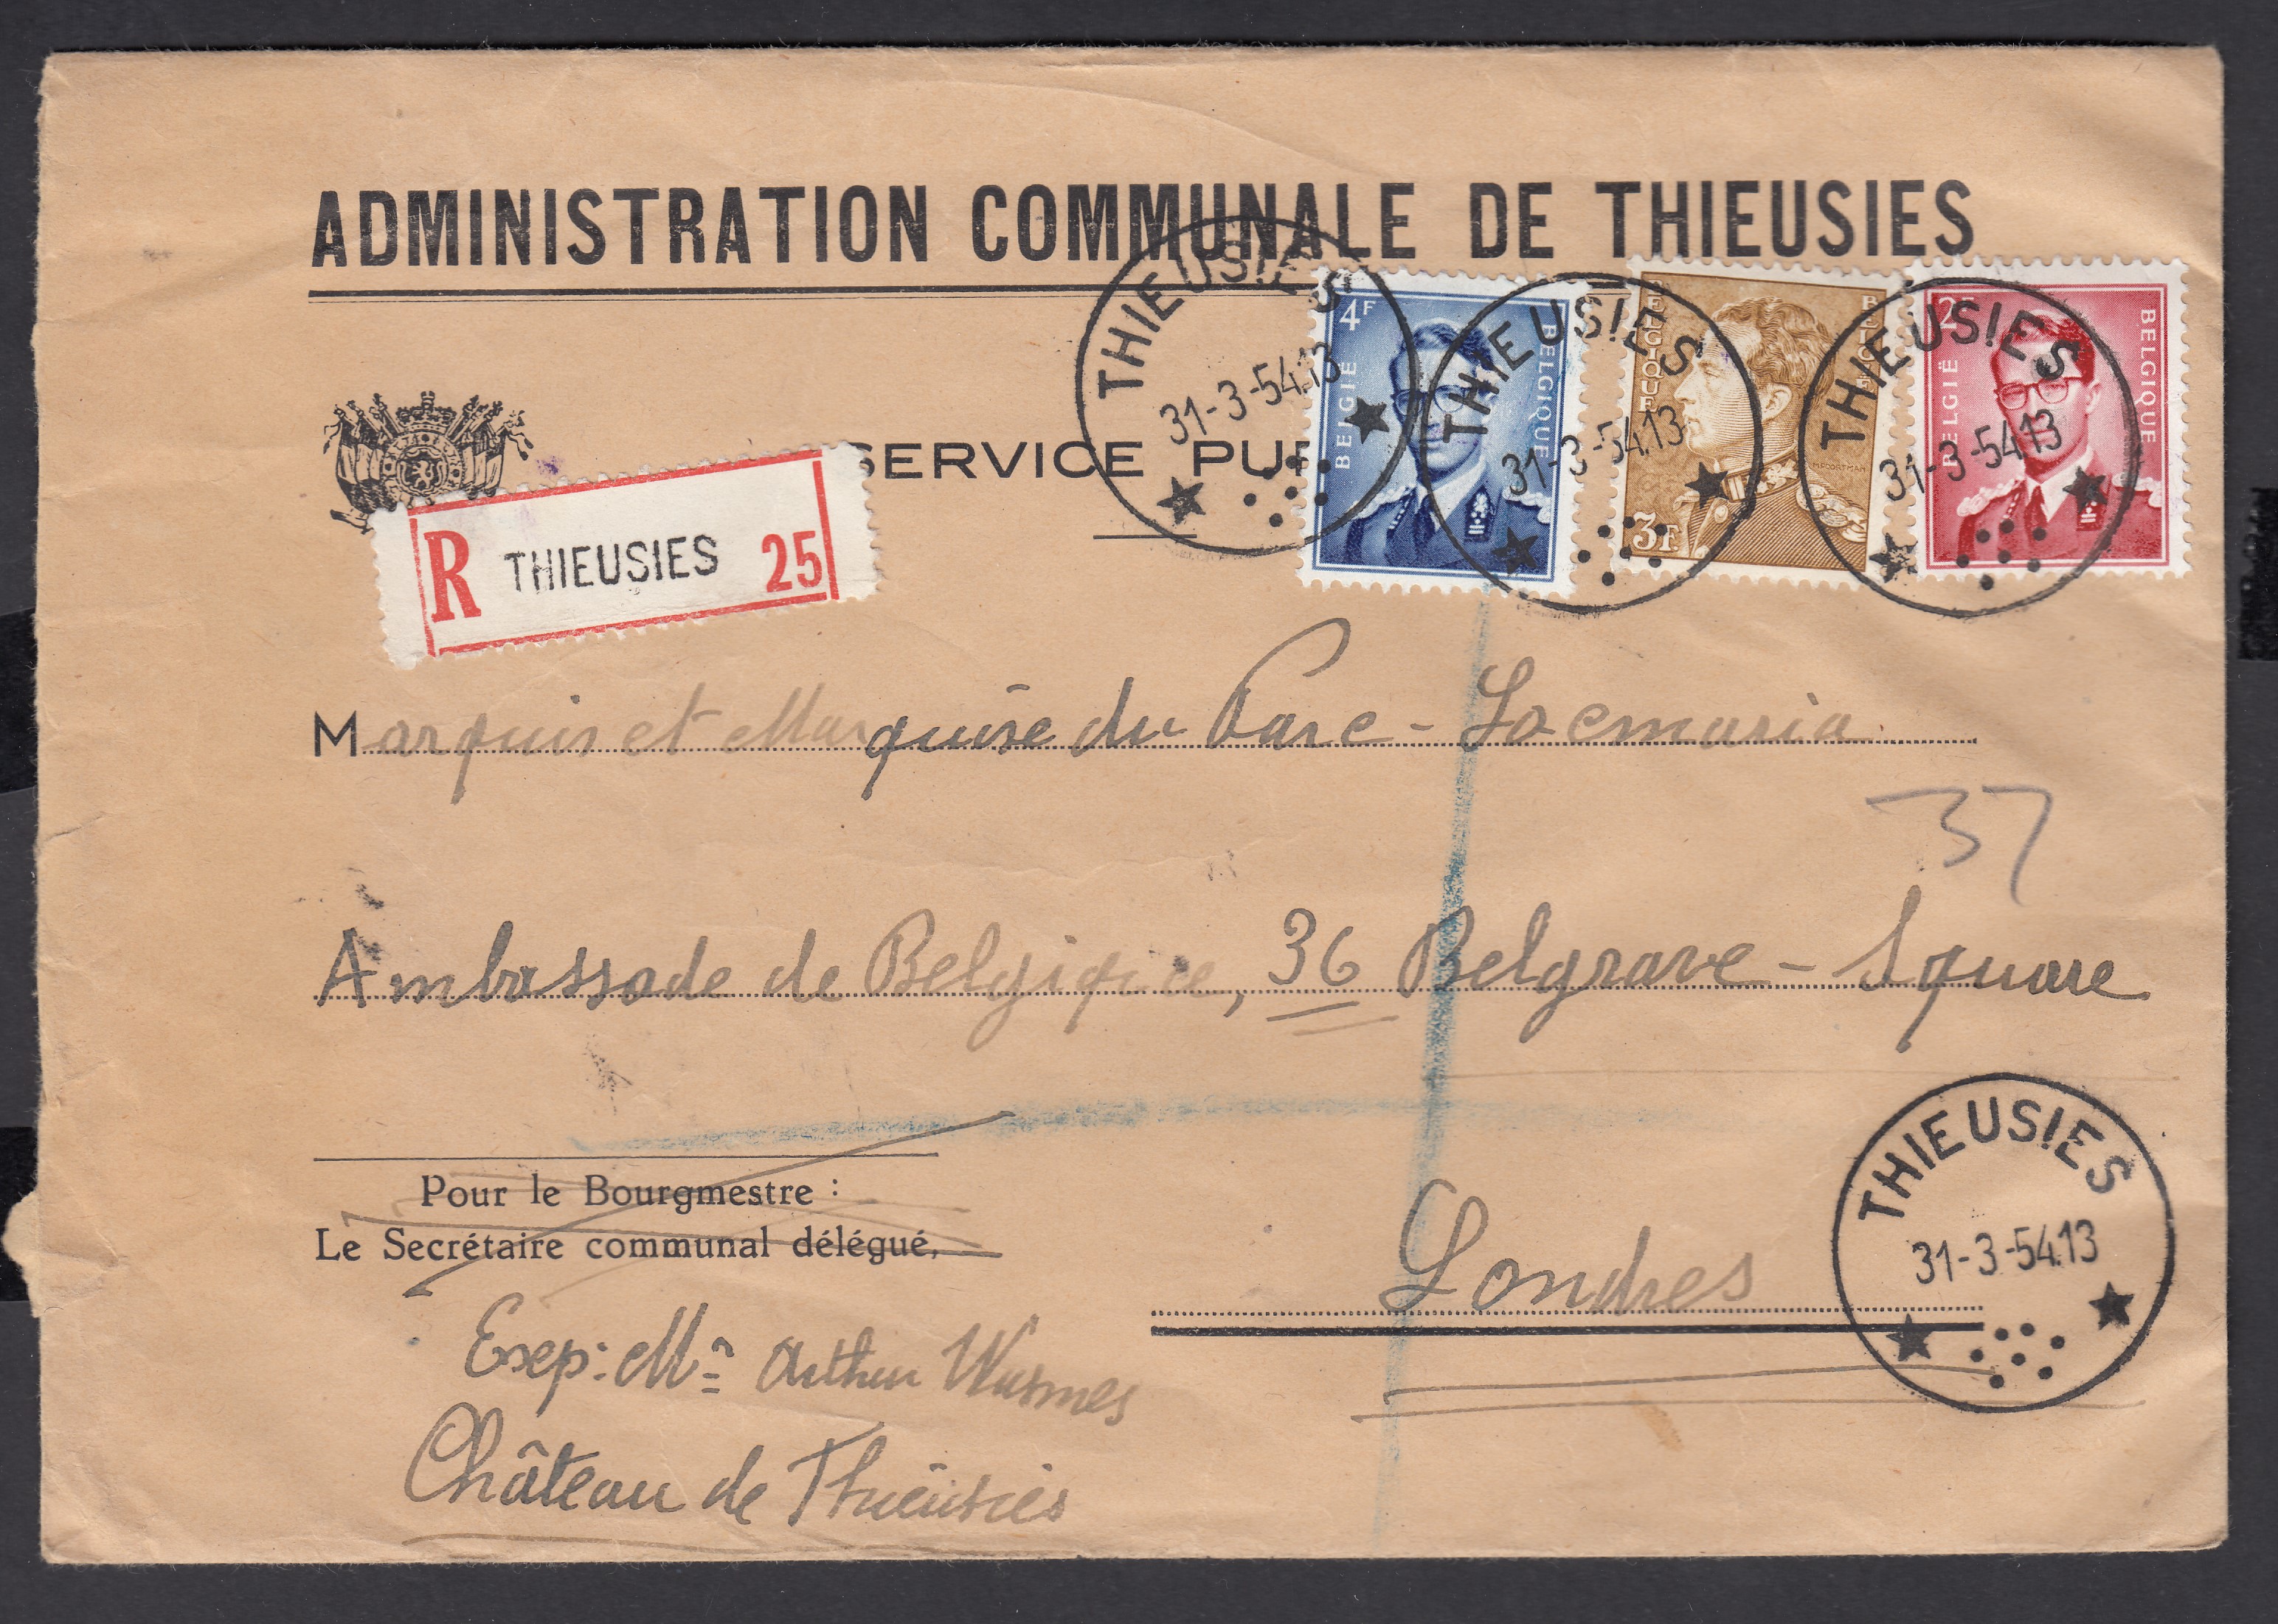 ADMINISTRATION COMMUNALE DE THIEUSIES
THIEUSIES
31-3-54.13
4F
BELGIË
BELGIQUE
THIEUSIES
31-3-54.13
BELGIQUE
3F.
THIEUSIES
31-3-54.13
2F
BELGIË
BELGIQUE
SERVICE PU
R THIEUSIES 25
Marquis et Marquise du Parc-Locmaria
37
Ambassade de Belgique, 36 Belgrave-Square
Pour le Bourgmestre :
Le Secrétaire communal délégué,
THIEUSIES
31-3-54.13
Londres
Exep: Mr Arthur Wasmes
Château de Thieusies